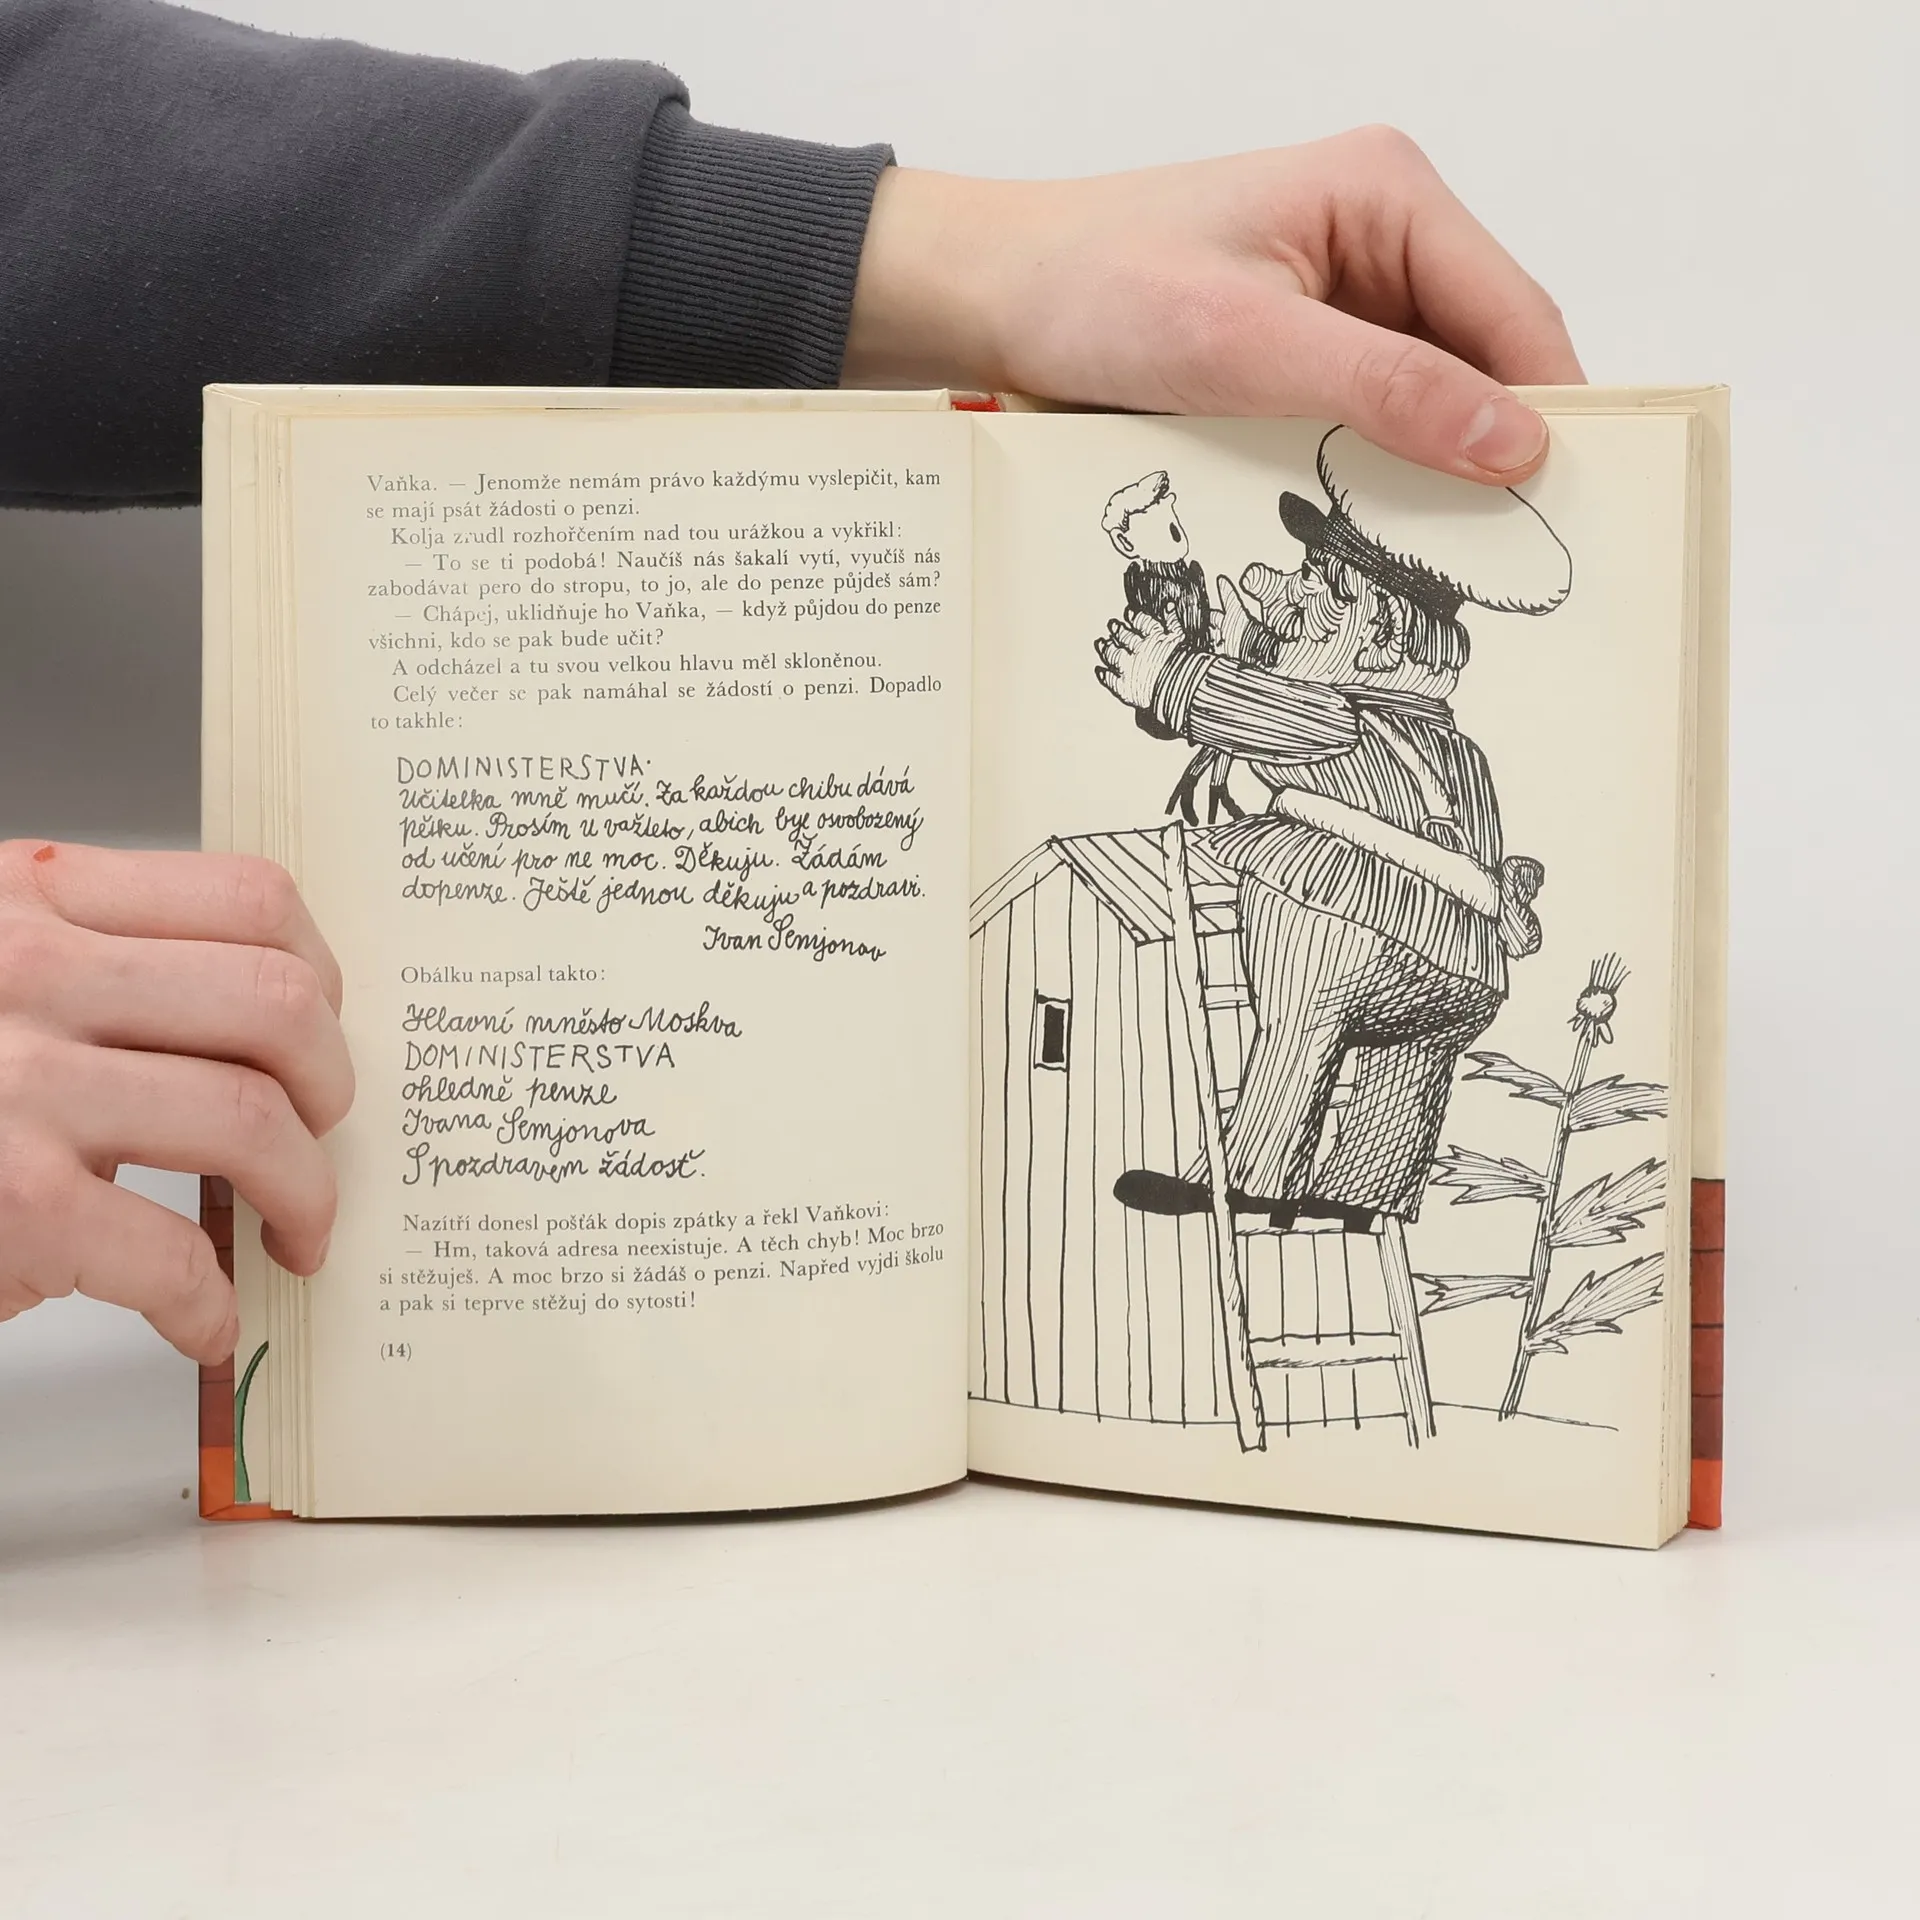 Vaňka. — Jenomže nemám právo každýmu vyslepičit, kam
se mají psát žádosti o penzi.
Kolja zrudl rozhořčením nad tou urážkou a vykřikl:
— To se ti podobá! Naučíš nás šakalí vytí, vyučíš nás
zabodávat pero do stropu, to jo, ale do penze půjdeš sám?
— Chápej, uklidňuje ho Vaňka, — když půjdou do penze
všichni, kdo se pak bude učit?
A odcházel a tu svou velkou hlavu měl skloněnou.
Celý večer se pak namáhal se žádostí o penzi. Dopadlo
to takhle:
DOMINISTERSTVA.
Učitelka mně mučí. Za každou chibu dává
pětku. Prosím u važteto, abich byl osvobozený
od učení pro ne moc. Děkuju. Žádám
dopenze. Ještě jednou děkuju a pozdravi.
Ivan Semjonov
Obálku napsal takto:
Hlavní mněsto Moskva
DOMINISTERSTVA
ohledně penze
Ivana Semjonova
S pozdravem žádosť.
Nazítří donesl pošťák dopis zpátky a řekl Vaňkovi:
— Hm, taková adresa neexistuje. A těch chyb! Moc brzo
si stěžuješ. A moc brzo si žádáš o penzi. Napřed vyjdi školu
a pak si teprve stěžuj do sytosti!
(14)